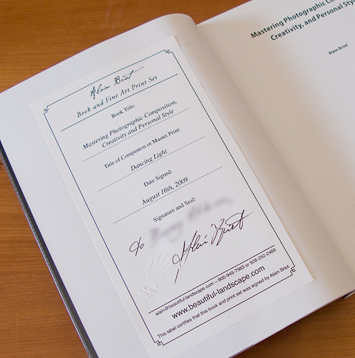 Alain Briot
Book and Fine Art Print Set
Book Title:
Mastering Photographic Composition,
Creativity and Personal Style
Title of Companion or Master Print:
Dancing Light
Date Signed:
August 16th, 2009
Signature and Seal:
to
Alain Briot
alain@beautiful-landscape.com - 800-949-7983 or 928-252-2466
www.beautiful-landscape.com
This label certifies that this book and print set was signed by Alain Briot
Mastering Photographic
Creativity, and Personal Style
Alain Briot